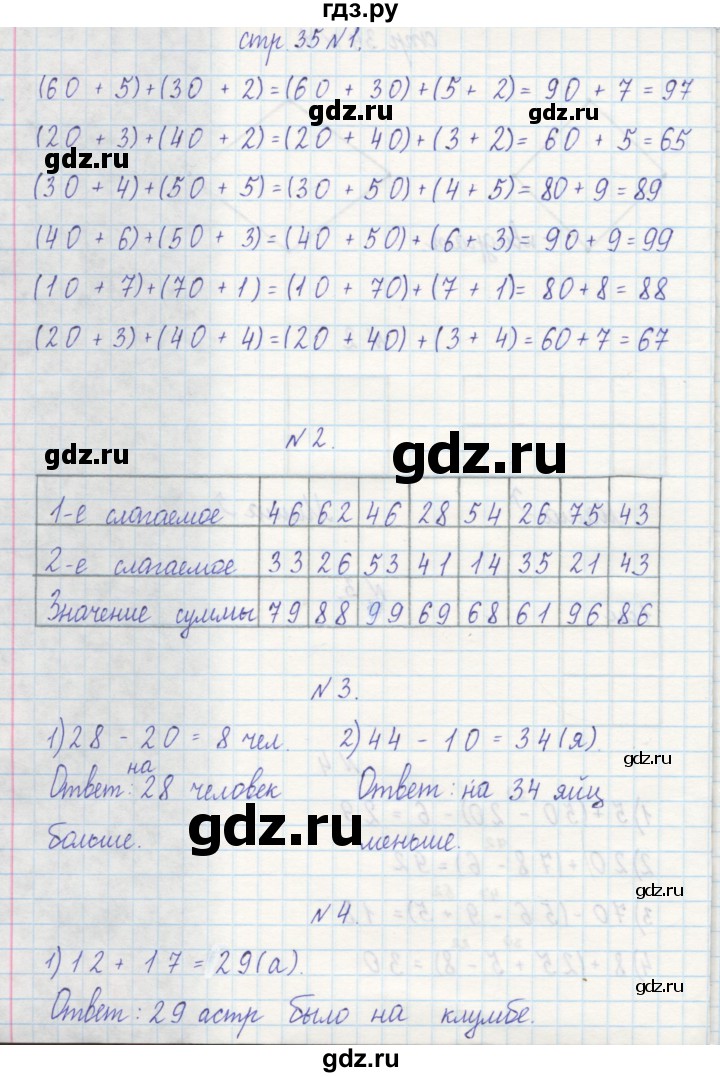 гдз.ру
стр. 35 №1.
(60 + 5) + (30 + 2) = (60 + 30) + (5 + 2) = 90 + 7 = 97
gdz.ru
gdz.ru
(20 + 3) + (40 + 2) = (20 + 40) + (3 + 2) = 60 + 5 = 65
gdz.ru
(30 + 4) + (50 + 5) = (30 + 50) + (4 + 5) = 80 + 9 = 89
(40 + 6) + (50 + 3) = (40 + 50) + (6 + 3) = 90 + 9 = 99
(10 + 7) + (70 + 1) = (10 + 70) + (7 + 1) = 80 + 8 = 88
(20 + 3) + (40 + 4) = (20 + 40) + (3 + 4) = 60 + 7 = 67
№ 2.
gdz.ru
gdz.ru
1-е слагаемое 46 62 46 28 54 26 75 43
2-е слагаемое 33 26 53 41 14 35 21 43
Значение суммы 79 88 99 69 68 61 96 86
№ 3.
1) 28 - 20 = 8 чел. 2) 44 - 10 = 34 (я).
gdz.ru
Ответ: на 28 человек Ответ: на 34 яйц
больше. меньше.
gdz.ru
gdz.ru
№ 4.
1) 12 + 17 = 29 (а).
Ответ: 29 астр было на клумбе.
gdz.ru
gdz.ru